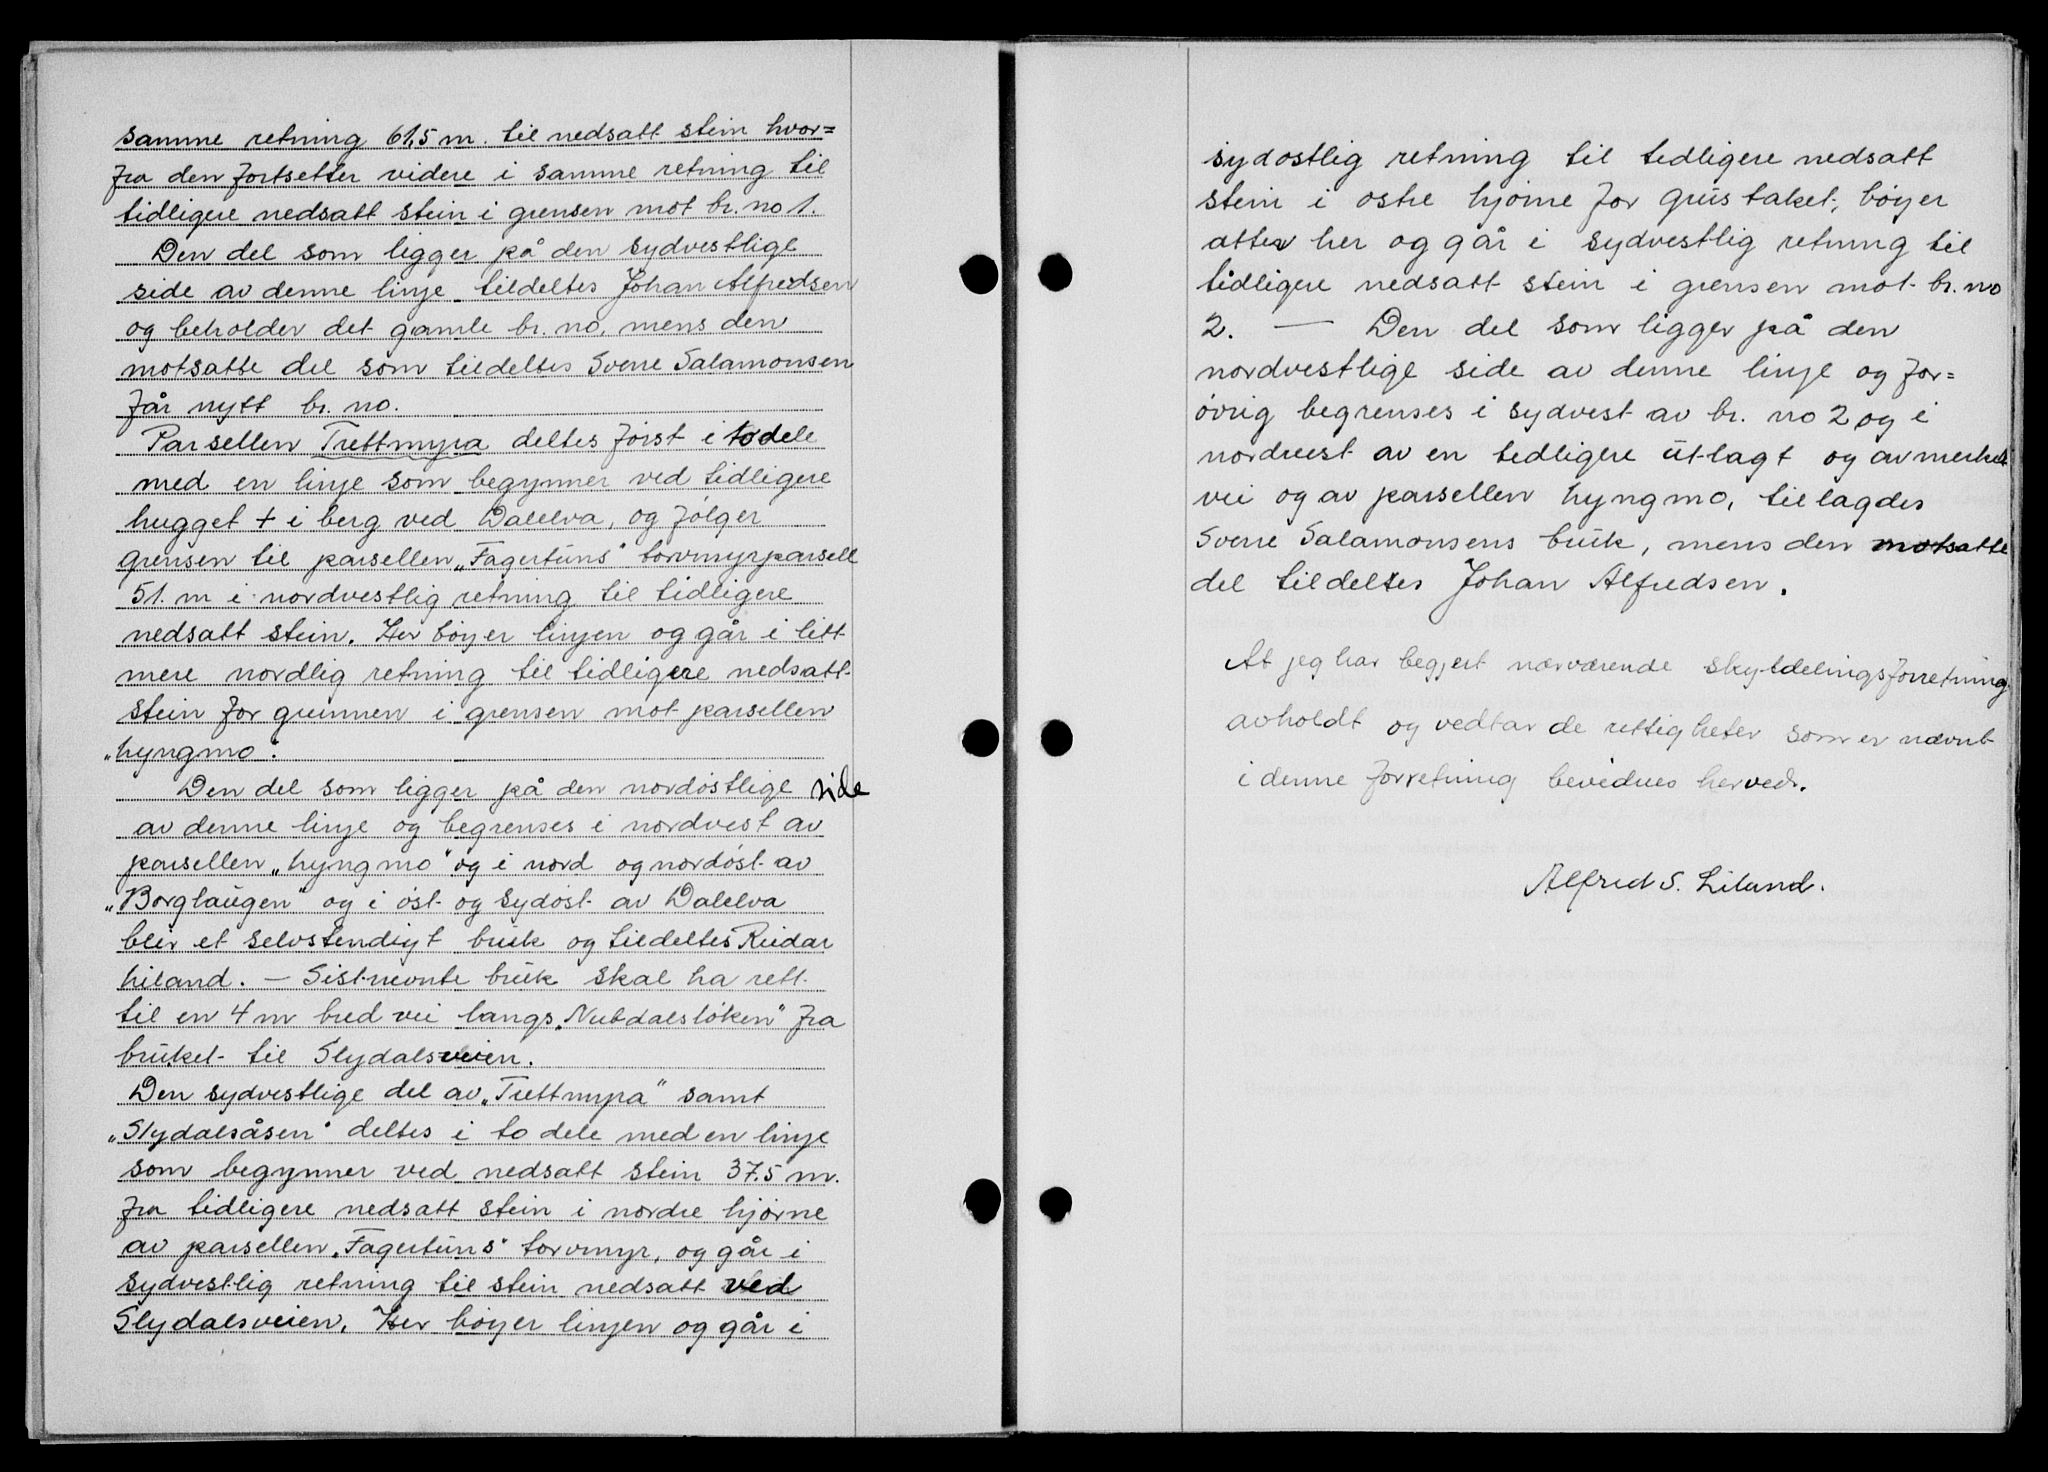 samme retning 61,5 m. til nedsatt stein hvor=
fra den fortsetter videre i samme retning til
tidligere nedsatt stein i grensen mot br. no 1.
Den del som ligger på den sydvestlige
side av denne linje tildeltes Johan Alfredsen
og beholder det gamle br. no. mens den
motsatte del som tildeltes Sverre Salamonsen
får nytt br. no.
Parsellen Trettmyra deltes først i to dele
med en linje som begynner ved tidligere
hugget + i berg ved Dalelva, og følger
grensen til parsellen „Fagertuns" torvmyrparsell
51. m i nordvestlig retning til tidligere
nedsatt stein. Her böyer linjen og går i litt
mere nordlig retning til tidligere nedsatt
stein for grinnen i grensen mot parsellen
„Lyngmo".
Den del som ligger på den nordöstlige side
av denne linje og begrenses i nordvest av
parsellen „Lyngmo" og i nord og nordöst av
„Borglaugen" og i öst og sydöst av Dalelva
blir et selvstendigt bruk og tildeltes Reidar
Liland. — Sistnevnte bruk skal ha rett
til en 4 m bred vei langs „Nubdalslöken" fra
bruket til Slydalsveien.
Den sydvestlige del av „Trettmyra" samt
„Slydalsåsen" deltes i to dele med en linje
som begynner ved nedsatt stein 37.5 m.
fra tidligere nedsatt stein i nordre hjörne
av parsellen „Fagertuns" torvmyr, og går i
sydvestlig retning til stein nedsatt ved
Slydalsveien. Her böyer linjen og går i
sydostlig retning til tidligere nedsatt
stein i ostre hjörne for grustaket, böyer
atter her og går i sydvestlig retning til
tidligere nedsatt stein i grensen mot br. no
2. — Den del som ligger på den
nordvestlige side av denne linje og for=
övrig begrenses i sydvest av br. no 2 og i
nordvest av en tidligere utlagt og avmerket
vei og av parsellen Lyngmo, tillagdes
Sverre Salamonsens bruk, mens den motsatte
del tildeltes Johan Alfredsen.
At jeg har begjert nærværende skyldelingsforretning
avholdt og vedtar de rettigheter som er nævnt
i denne forretning bevidnes herved.
Alfred S. Liland.